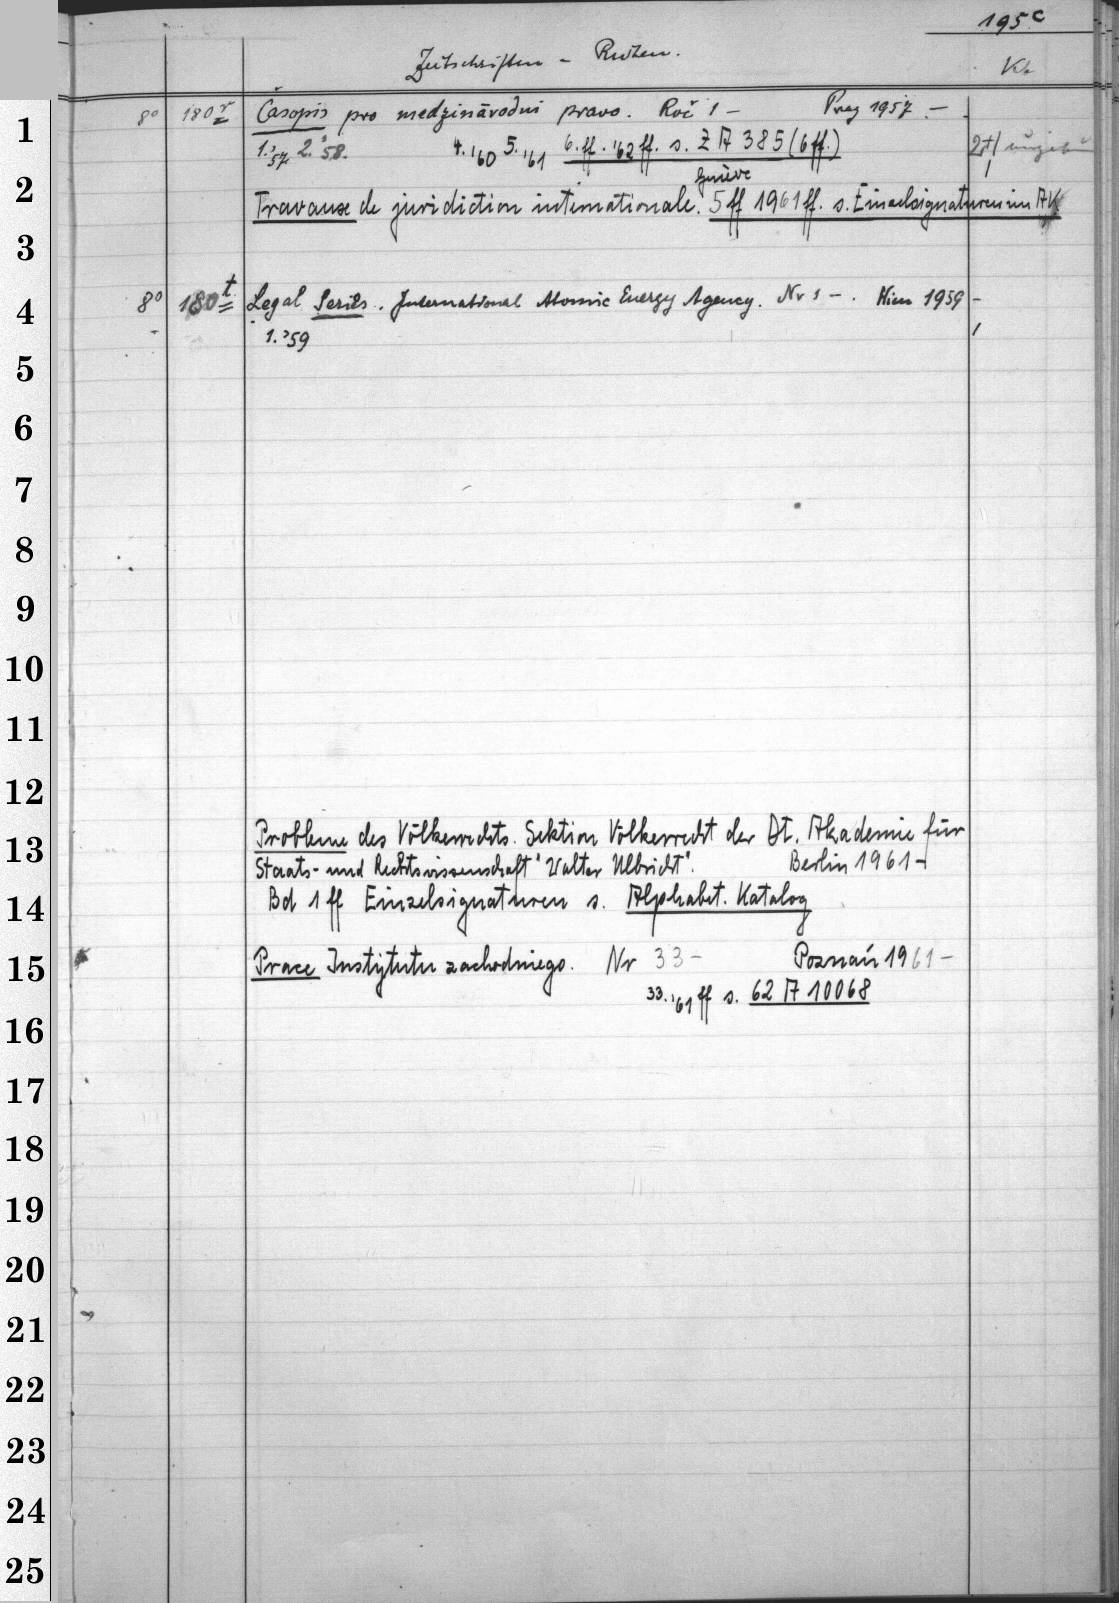 195 c
Zeitschriften - Reihen.
K.
1
8° 180 r Časopis pro medzinárodni pravo. Roč 1 - Prag 1957. -
1.'57 2.'58. 4.'60 5.'61 6.ff.'62 ff. s. Z A 385 (6 ff.) 2+1
Genève
2
Travaux de juridiction internationale. 5 ff 1961 ff. s. Einzelsignaturen im AK
3
4
8° 180 t Legal Series. International Atomic Energy Agency. Nr 1 - . Wien 1959 -
1.'59 1
5
6
7
8
9
10
11
12
13
Probleme des Völkerrechts. Sektion Völkerrecht der Dt. Akademie für
Staats- und Rechtswissenschaft "Walter Ulbricht". Berlin 1961 -
14
Bd 1 ff Einzelsignaturen s. Alphabet. Katalog
15
Prace Instytutu zachodniego. Nr 33 - Poznań 1961 -
33.'61 ff s. 62 A 10068
16
17
18
19
20
21
22
23
24
25